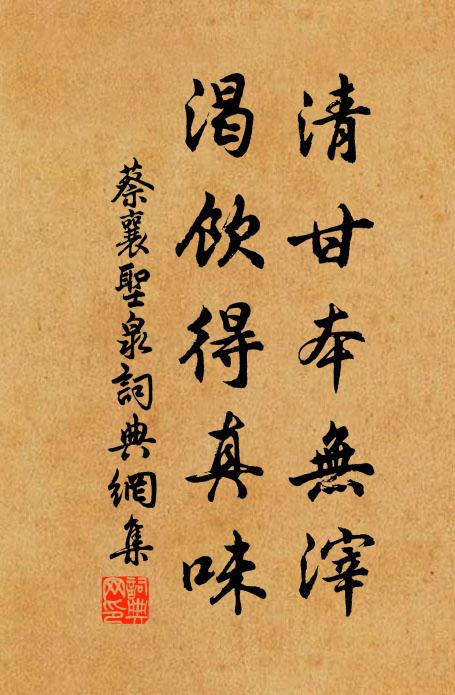 清甘本無滓
渴飲得真味
蔡襄聖泉詞典網集
詞典网印